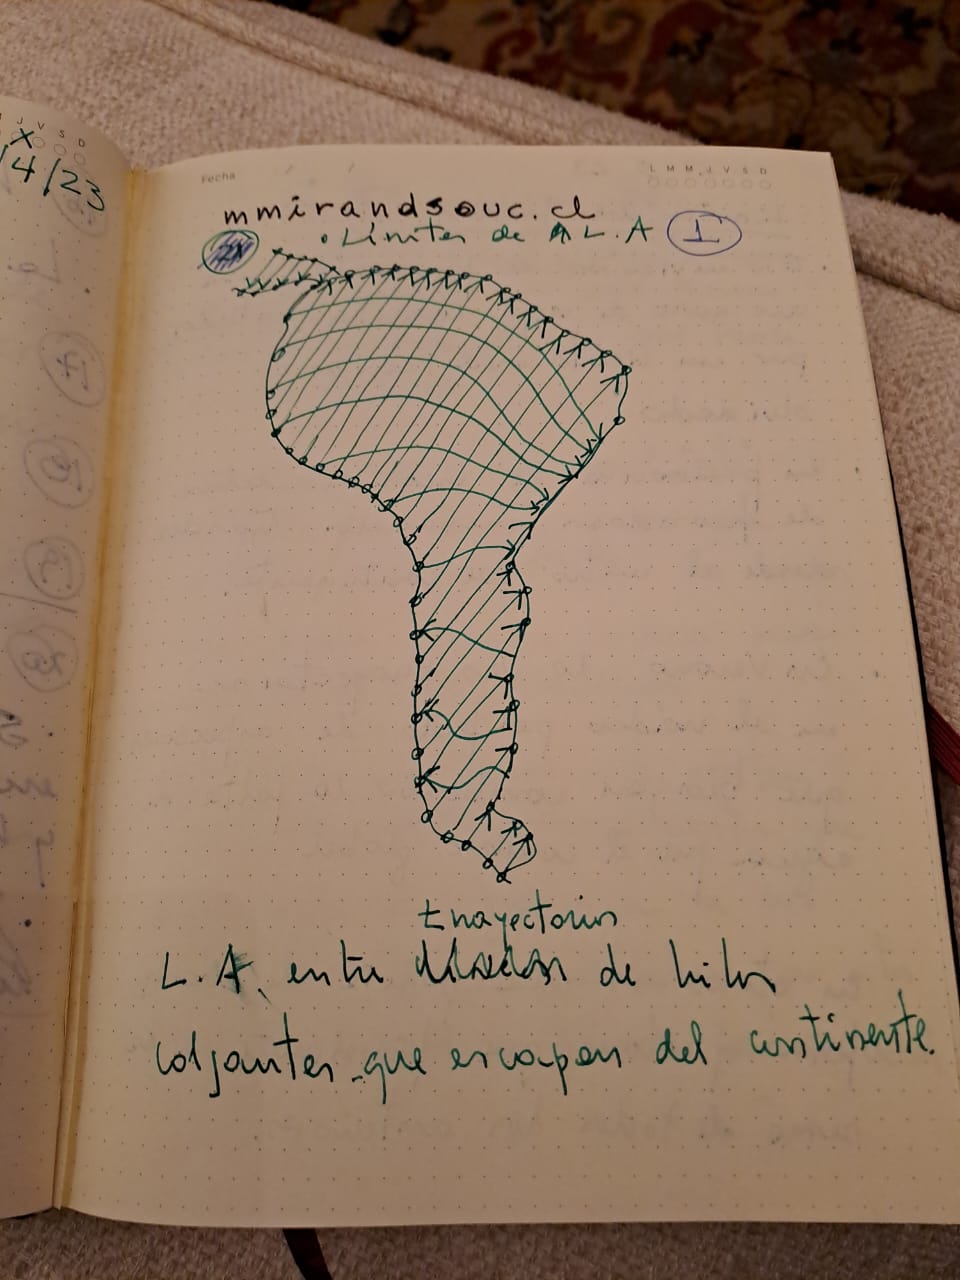 J V S D
/4/23
Fecha
L M M J V S D
mmirandsouc.cl
• Límites de A L.A 1
trayectorias
L.A. entre de hilos
colgantes que escapan del continente.